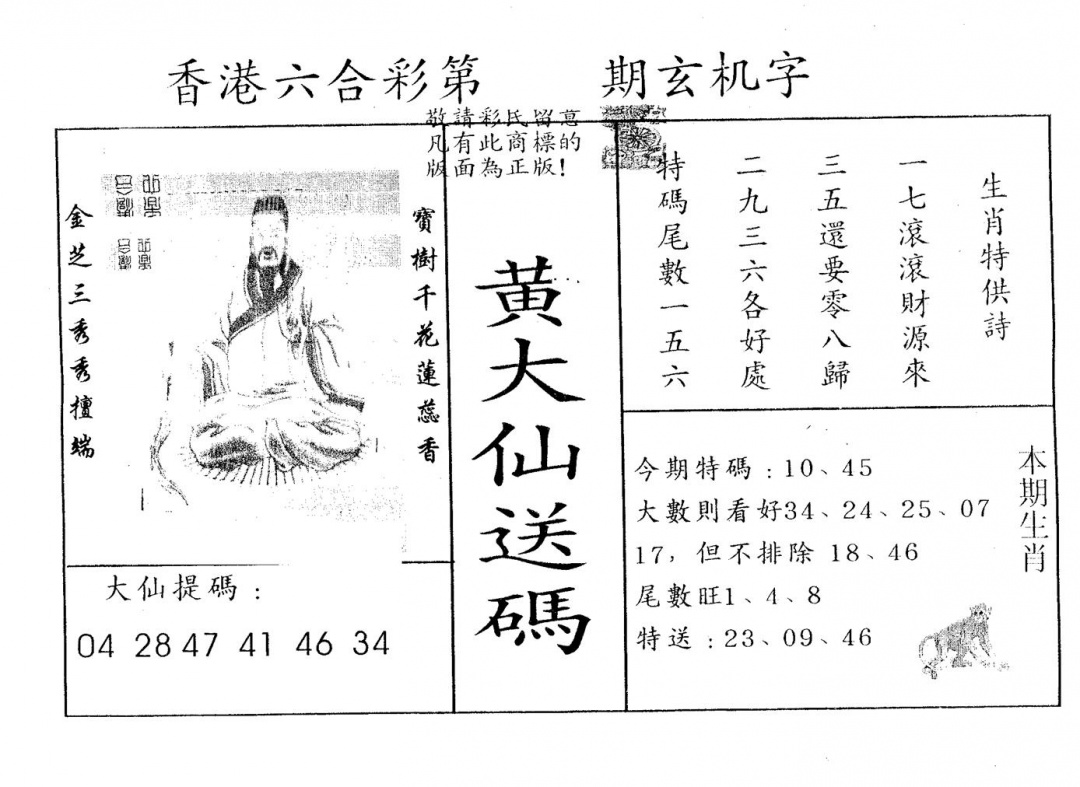 香港六合彩第　　期玄机字
敬請彩民留意
凡有此商標的
版面為正版!
寶樹千花蓮蕊香
金芝三秀秀檀端
大仙提碼：
04 28 47 41 46 34
黄大仙送碼
生肖特供詩
一七滾滾財源來
三五還要零八歸
二九三六各好處
特碼尾數一五六
本期生肖
今期特碼：10、45
大數則看好34、24、25、07
17，但不排除 18、46
尾數旺1、4、8
特送：23、09、46